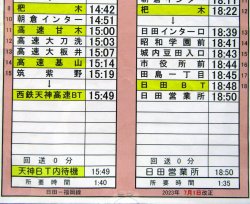 8 杷木 14:42 杷木 18:22
9 朝倉インター 14:51 ↓
11 高速甘木 15:00 日田インター口 18:39
高速大刀洗 15:03 昭和学園前 18:41
高速大板井 15:07 城内豆田入口 18:43
14 高速基山 15:14 市役所前 18:44
15 筑紫野 15:19 田島一丁目 18:45
↓ 日田BT 18:48
西鉄天神高速BT 15:49 日田営業所 18:50
回送0分 回送0分
天神BT内待機 15:49 日田営業所 18:50
所要時間 1:40 所要時間 1:35
日田-福岡線 2023年 7月1日改正